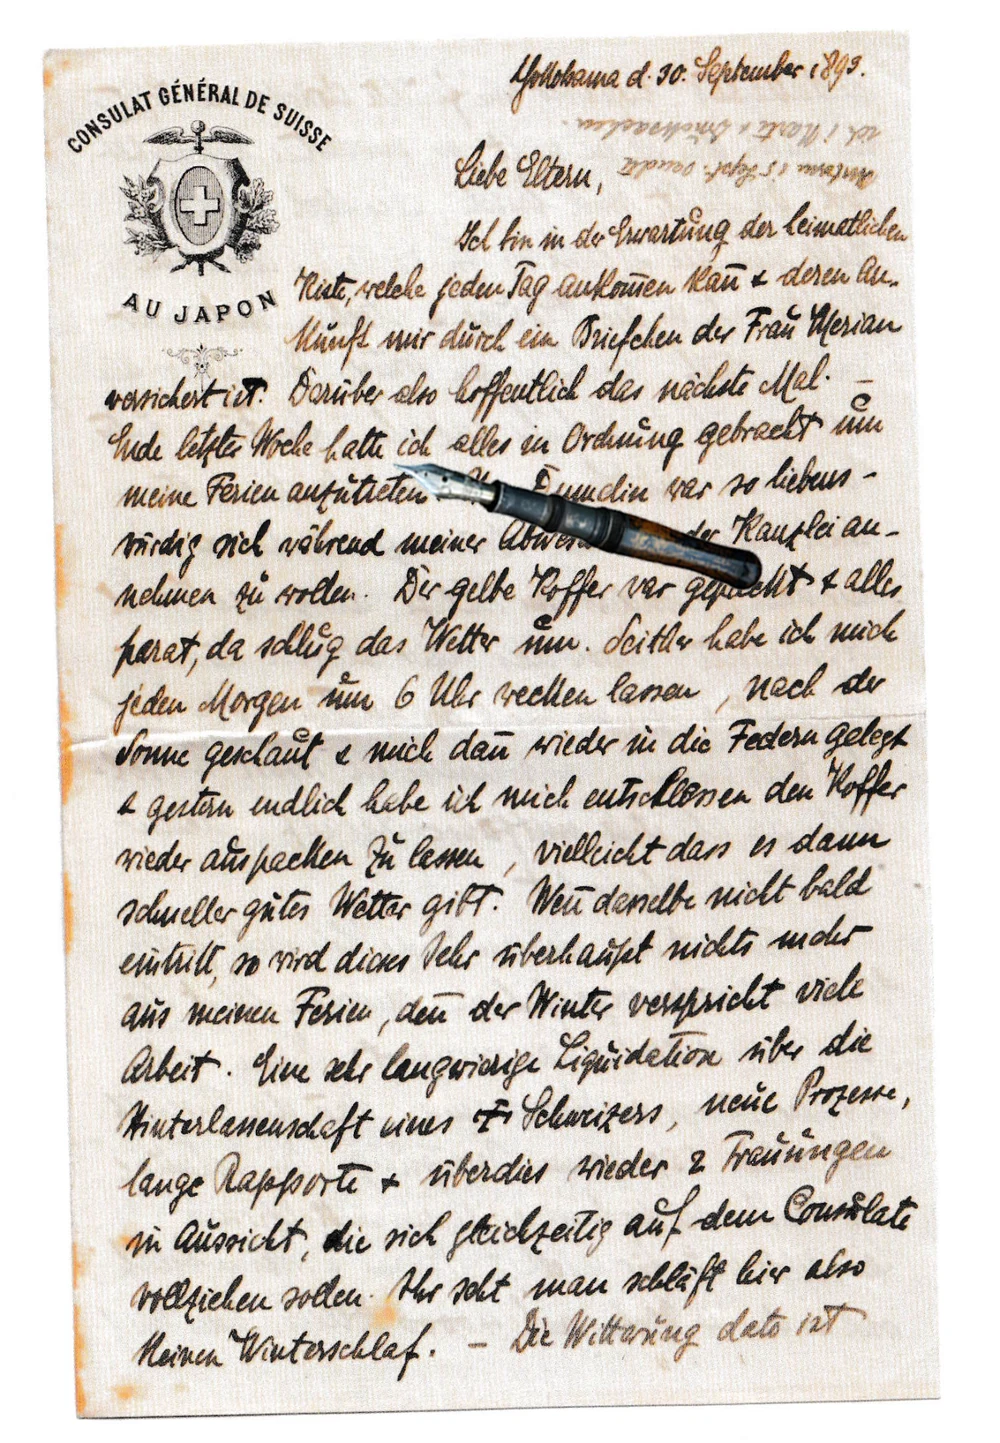 CONSULAT GÉNÉRAL DE SUISSE
AU JAPON
Yokohama d. 30. September 1893.
Liebe Eltern,
Ich bin in der Erwartung der heimatlichen
Kiste, welche jeden Tag ankom̅en kan̅ & deren An-
kunft mir durch ein Briefchen der Frau Merian
versichert ist. Darüber also hoffentlich das nächste Mal. –
Ende letzter Woche hatte ich alles in Ordnung gebracht um
meine Ferien anzutreten war so liebens-
würdig sich während meiner der Kanzlei an-
nehmen zu wollen. Der gelbe Koffer war gepackt & alles
parat, da schlug das Wetter um. Seither habe ich mich
jeden Morgen um 6 Uhr wecken lassen, nach der
Sonne geschaut & mich dan̅ wieder in die Federn gelegt
& gestern endlich habe ich mich entschlossen den Koffer
wieder auspacken zu lassen, vielleicht dass es dann
schneller gutes Wetter gibt. Wen̅ dasselbe nicht bald
eintritt, so wird dieses Jahr überhaupt nichts mehr
aus meinen Ferien, den̅ der Winter verspricht viele
Arbeit. Eine sehr langwierige Liquidation über die
Hinterlassenschaft eines † Schweizers, neue Prozesse,
lange Rapporte & überdies wieder 2 Trauungen
in Aussicht, die sich gleichzeitig auf dem Consulate
vollziehen sollen. Ihr seht man schläft hier also
keinen Winterschlaf. – Die Witterung dato ist